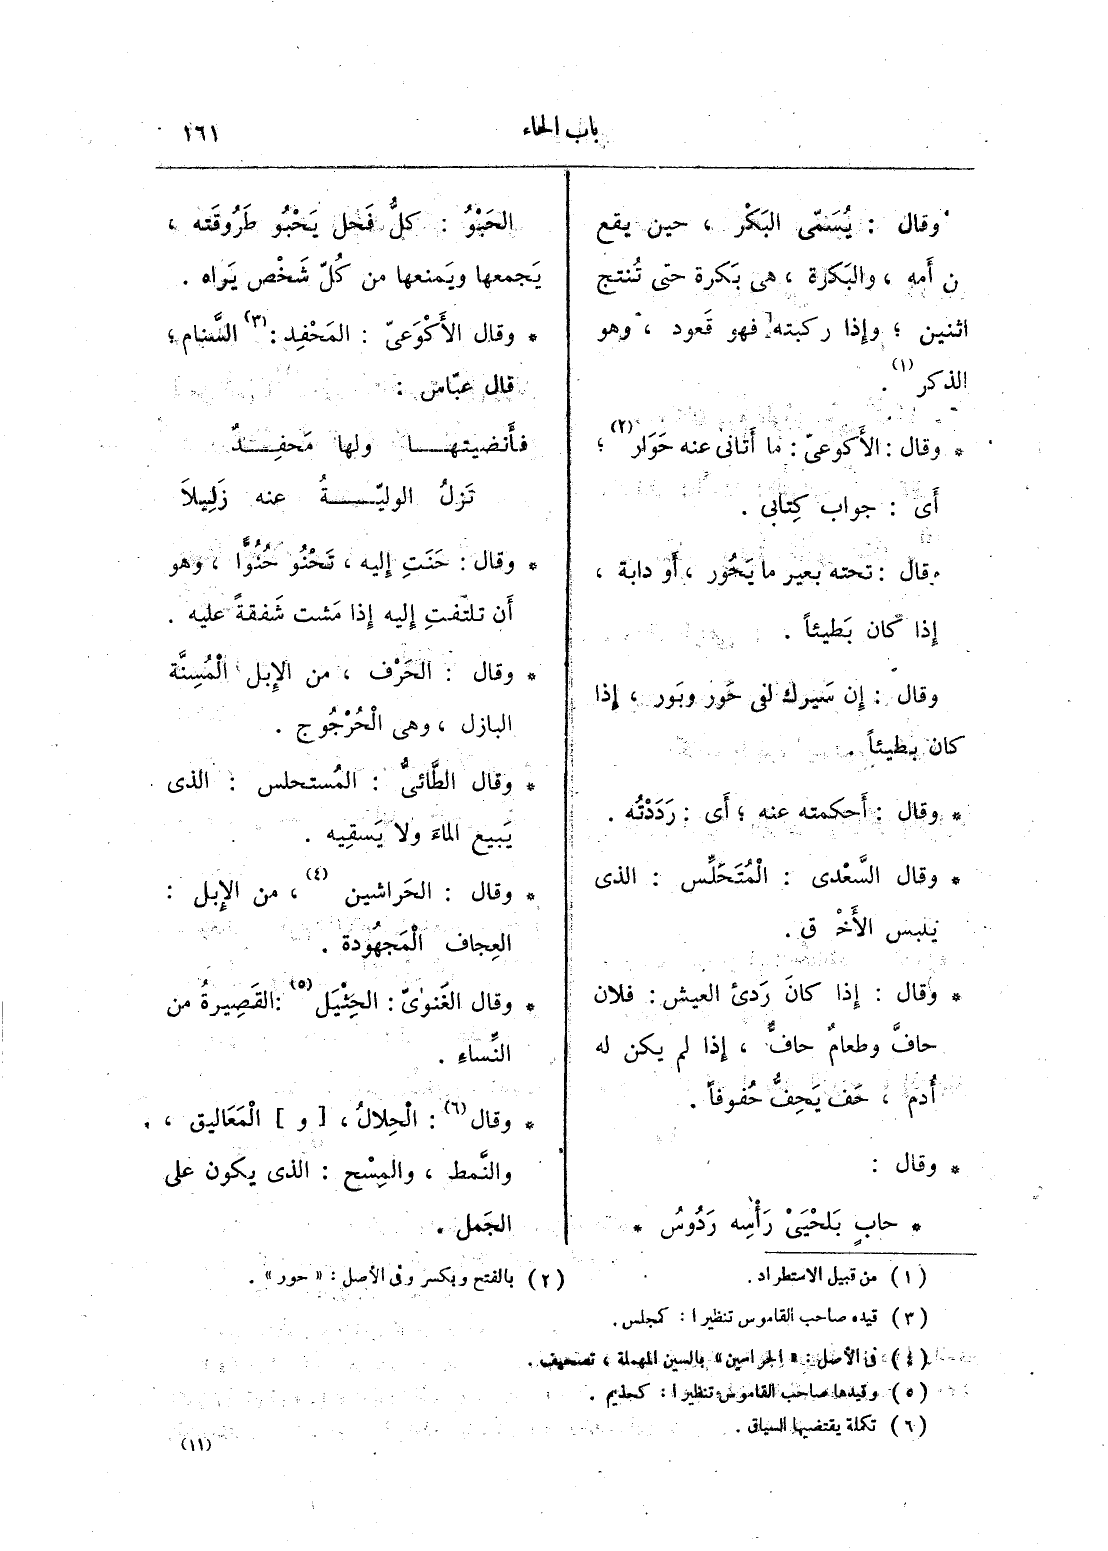 باب الحاء
١٦١
وقال : يُسَمّى البَكْر ، حين يقع
ن أمه ، والبَكرة ، هى بَكرة حتى تُنتج
اثنين ؛ وإذا ركبته فهو قَعود ، وهو
الذكر (١) .
* وقال : الأَكوعىّ : ما أَتانى عنه حَوَار (٢) ؛
أَى : جواب كِتابى .
وقال : تحته بعير ما يَحُور ، أَو دابة ،
إذا كان بَطيئاً .
وقال : إن سَيرك لفى حَور وبَور ، إذا
كان بطيئاً .
* وقال : أَحكمته عنه ؛ أَى : رَدَدْتُه .
* وقال السَّعْدى : الْمُتَحَلِّس : الذى
يلبس الأَخْ ق .
* وقال : إذا كانَ رَدئ العيش : فلان
حافٌّ وطعامٌ حافٌّ ، إذا لم يكن له
أُدم ، حَف يَحِفُّ حُفوفاً .
* وقال :
* حابٍ بَلحْيَىْ رَأْسِه رَدُوسُ *
الحَبْوُ : كلُّ فَحل يَحْبُو طَرُوقَته ،
يَجمعها ويَمنعها من كُلّ شَخْص يَراه .
* وقال الأَكْوَعىّ : المَحْفِد : (٣) السَّنام ؛
قال عبّاس :
فأَنضيتهـا ولها مَحفِـدٌ
تَزلُ الوليّـةُ عنه زَلِيلاَ
* وقال : حَنَتِ إليه ، تَحْنُو حُنُوًّا ، وهو
أَن تلتفتِ إليه إذا مَشت شَفقةً عليه .
* وقال : الحَرْف ، من الإبل الْمُسِنَّة
البازل ، وهى الْحُرْجُوج .
* وقال الطَّائىُّ : المُستحلس : الذى
يَبيع الماءَ ولا يَسقِيه .
* وقال : الحَراشين (٤) ، من الإبل :
العِجاف الْمَجهُودة .
* وقال الغَنوىّ : الحِثْيَل (٥) : القَصِيرةُ من
النِّساءِ .
* وقال (٦) : الْحِلالُ ، [ و ] الْمَعَاليق ،
والنَّمط ، والمِسْح : الذى يكون على
الجَمل .
(١) من قبيل الاستطراد .
(٢) بالفتح ويكسر وفى الأصل : « حور » .
(٣) قيده صاحب القاموس تنظيرا : كمجلس .
(٤) فى الأصل : « الحراسين » بالسين المهملة ، تصحيف .
(٥) وقيدها صاحب القاموس تنظيرا : كحذيم .
(٦) تكملة يقتضيها السياق .
(١١)